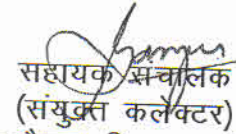 सहायक संचालक
(संयुक्त कलेक्टर)